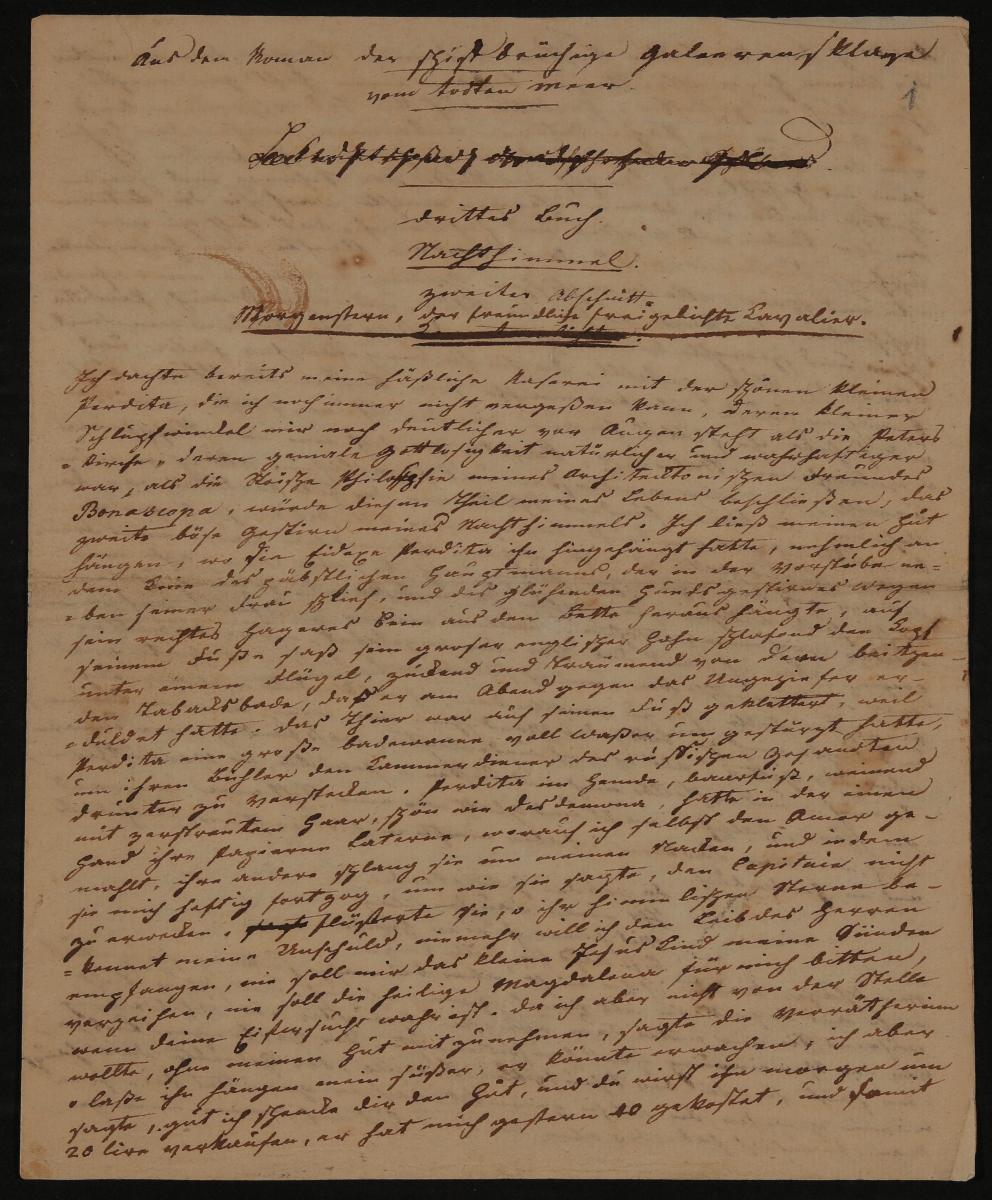 Aus dem Roman der schiffbrüchige Galeerensklave
vom todten Meer.
1
drittes Buch.
Nachthimmel.
zweiter Abschnitt
Morgenstern, der freundliche freigelichte Cavalier.
Ich dachte bereits meine häßliche Raserei mit der schönen kleinen
Perdita, die ich noch immer nicht vergeßen kann, deren kleiner
Schlupfwinkel mir noch deutlicher vor Augen steht als die Peters
-kirche, deren geniale Gottlosigkeit natürlicher und wahrhaftiger
war, als die Philosophie meines Architektonischen Freundes
Bonascopa, würde diesen Theil meines Lebens beschließen, das
zweite böse Gestirn meines Nachthimmels. Ich ließ meinen Hut
hängen, wo die Eidexe Perdita ihn hingehängt hatte, nehmlich an
dem Knie des päbstlichen Hauptmanns, der in der Vorstube ne-
-ben seiner Frau schlief, und des glühenden Hundsgestirnes wegen
sein rechtes hageres Bein aus dem Bette heraus hängte, auf
seinem Fuße saß sein groser englischer Hahn schlafend den Kopf
unter einem Flügel, zuckend und träumend von dem beitzen-
den Tabacksbade, das er am Abend gegen das Ungeziefer er-
-duldet hatte. das Thier war auf seinen Fuß geklettert, weil
Perdita eine große Badewanne voll Waßer umgestürzt hatte,
um ihren Buhler den Kammerdiener des rußischen Gesandten
drunter zu verstecken. Perdita im Hemde, baarfuß, weinend
mit zerstreutem Haar, schön wie Desdemona, hatte in der einen
Hand ihre papierne Laterne, worauf ich selbst den Amor ge-
mahlt, ihre andere schlang sie um meinen Nacken, und indem
sie mich heftig fortzog, um wie sie sagte, den Capitain nicht
zu erwecken, flüsterte sie, o ihr himmlischen Sterne be-
-kennet meine Unschuld, niemehr will ich den Leib des Herren
empfangen, nie soll mir das kleine Jesus Kind meine Sünden
verzeihen, nie soll die heilige Magdalena für mich bitten,
wenn deine Eifersucht wahr ist. da ich aber nicht von der Stelle
wollte, ohne meinen Hut mitzunehmen, sagte die Verrätherinn
laße ihn hängen mein süßer, er könnte erwachen, ich aber
sagte, gut ich schencke dir den Hut, und du wirst ihn morgen um
20 lire verkaufen, er hat mich gestern 40 gekostet, und damit